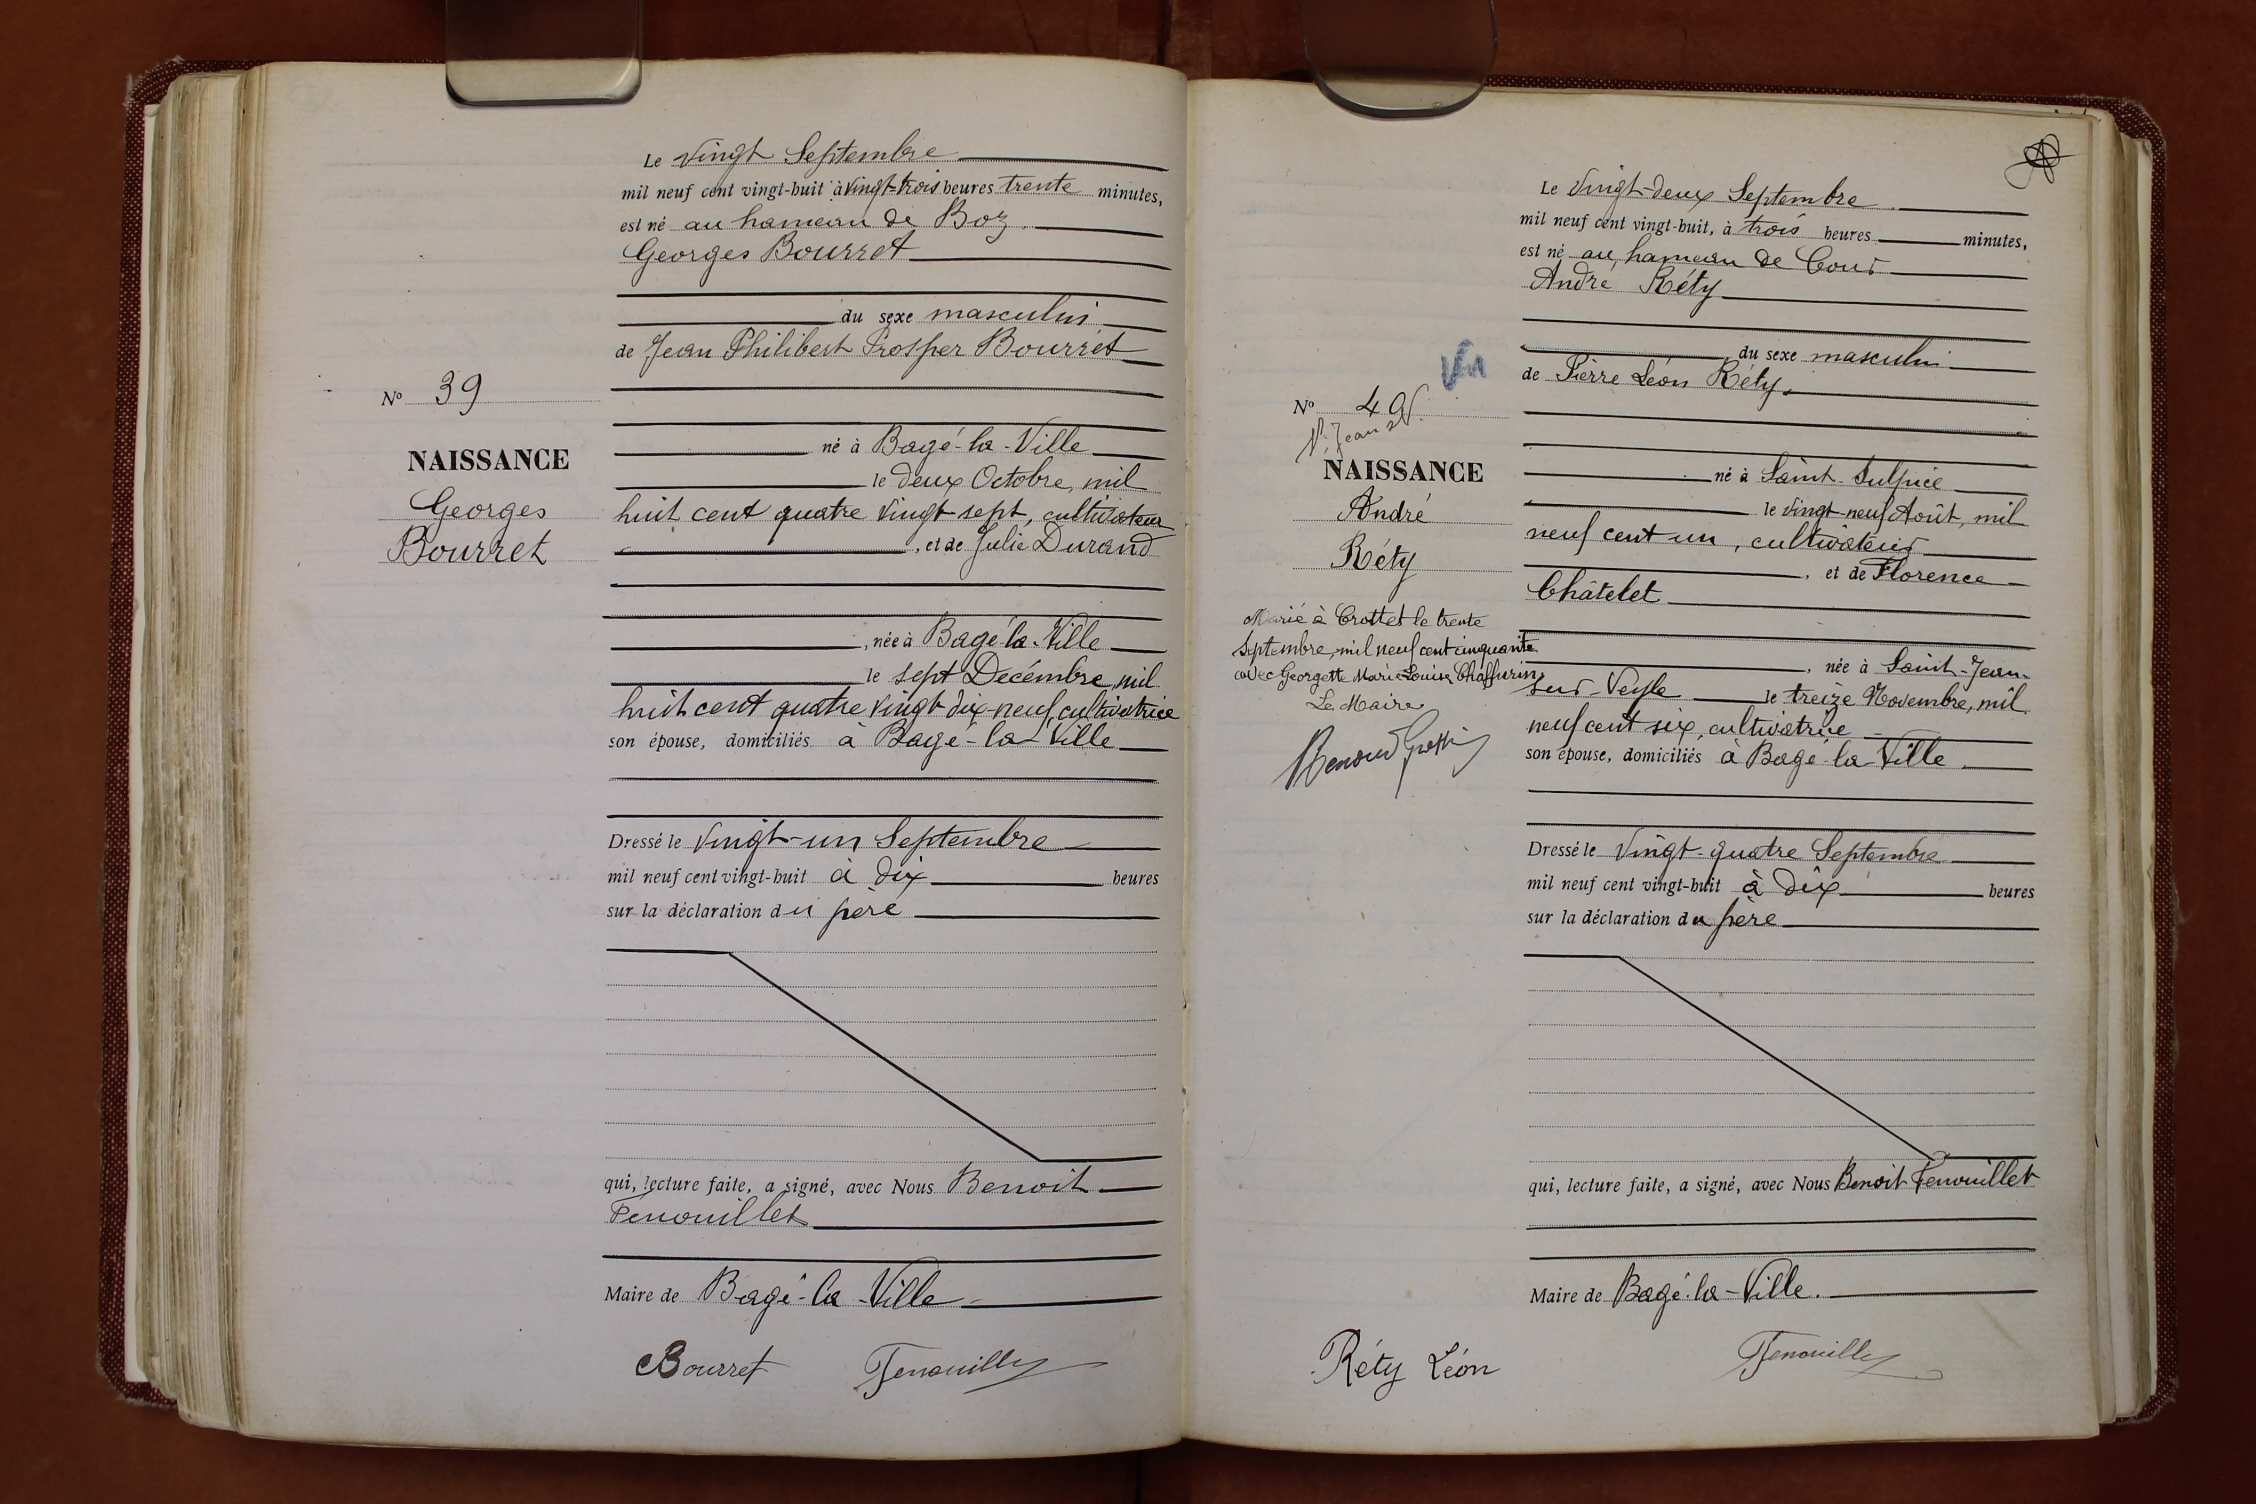 Le vingt Septembre
mil neuf cent vingt-huit à vingt-trois heures trente minutes,
est né au hameau de Boz
Georges Bourret
du sexe masculin
de Jean Philibert Prosper Bourret
né à Bagé-la-Ville
le deux Octobre, mil
huit cent quatre vingt sept, cultivateur
, et de Julie Durand
, née à Bagé-la-Ville
le sept Décembre, mil
huit cent quatre vingt dix-neuf, cultivatrice
son épouse, domiciliés à Bagé-la Ville
Dressé le vingt-un Septembre
mil neuf cent vingt-huit à dix heures
sur la déclaration du père
qui, lecture faite, a signé, avec Nous Benoit
Fenouillet
Maire de Bagé-la-Ville
Bourret Fenouillet
No 39
NAISSANCE
Georges
Bourret
Le vingt-deux Septembre
mil neuf cent vingt-huit, à trois heures minutes,
est né au hameau de Cour
André Réty
du sexe masculin
de Pierre Léon Réty
né à Saint-Sulpice
le vingt-neuf Août, mil
neuf cent un, cultivateur
, et de Florence
Châtelet
, née à Saint-Jean-
sur-Veyle le treize Novembre, mil
neuf cent six, cultivatrice
son épouse, domiciliés à Bagé-la-Ville
Dressé le vingt-quatre Septembre
mil neuf cent vingt-huit à dix heures
sur la déclaration du père
qui, lecture faite, a signé, avec Nous Benoit Fenouillet
Maire de Bagé-la-Ville.
Réty Léon Fenouillet
No 40
NAISSANCE
André
Réty
Marié à Crottet le trente
septembre, mil neuf cent cinquante
avec Georgette Marie Louise Chaffurin
Le Maire